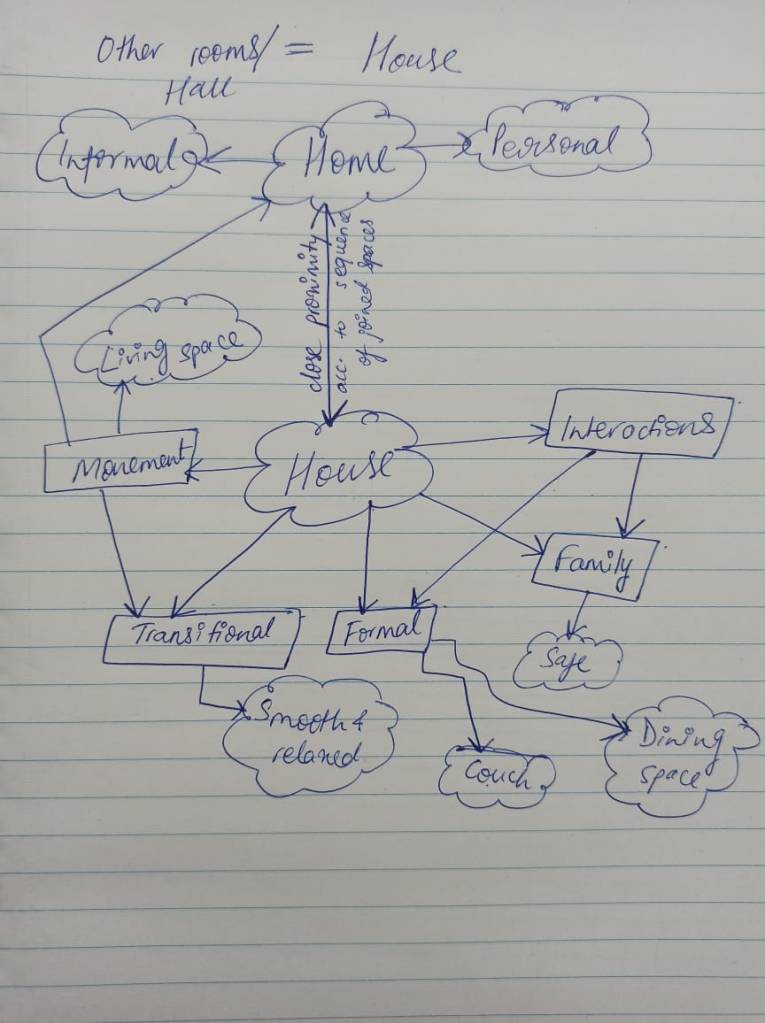 Other rooms/ = House
Hall
Informal
Home
Personal
close proximity
acc. to sequence
of joined spaces
Living space
Interactions
Movement
House
Family
Transitional
Formal
Safe
Smooth &
relaxed
Dining
space
Couch